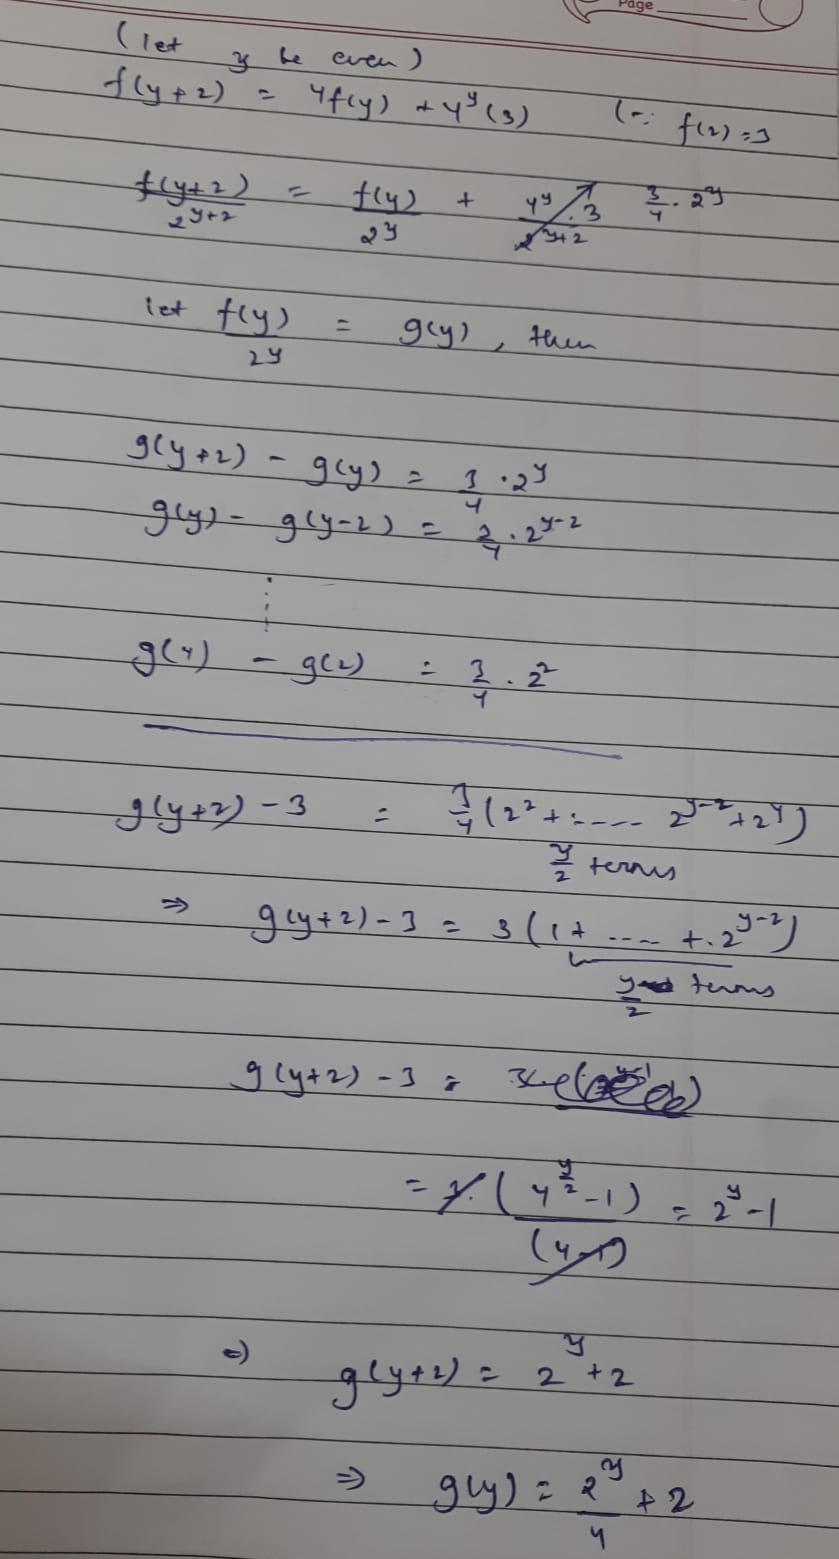 Page
(let y be even)
f(y+2) = 4f(y) + 4^y(3) (∵ f(2)=3
f(y+2)/2^{y+2} = f(y)/2^y + 4^y/2^{y+2} . 3 3/4 . 2^y
let f(y)/2^y = g(y), then
g(y+2) - g(y) = 3/4 . 2^y
g(y) - g(y-2) = 3/4 . 2^{y-2}
⋮
g(4) - g(2) = 3/4 . 2^2
g(y+2) - 3 = 3/4 (2^2 + ..... 2^{y-2} + 2^y)
y/2 terms
⇒ g(y+2) - 3 = 3 (1 + .... + . 2^{y-2})
y/2 terms
g(y+2) - 3 =
= 3. (4^{y/2} - 1)/(4-1) = 2^y - 1
⇒ g(y+2) = 2^y + 2
⇒ g(y) = 2^y/4 + 2